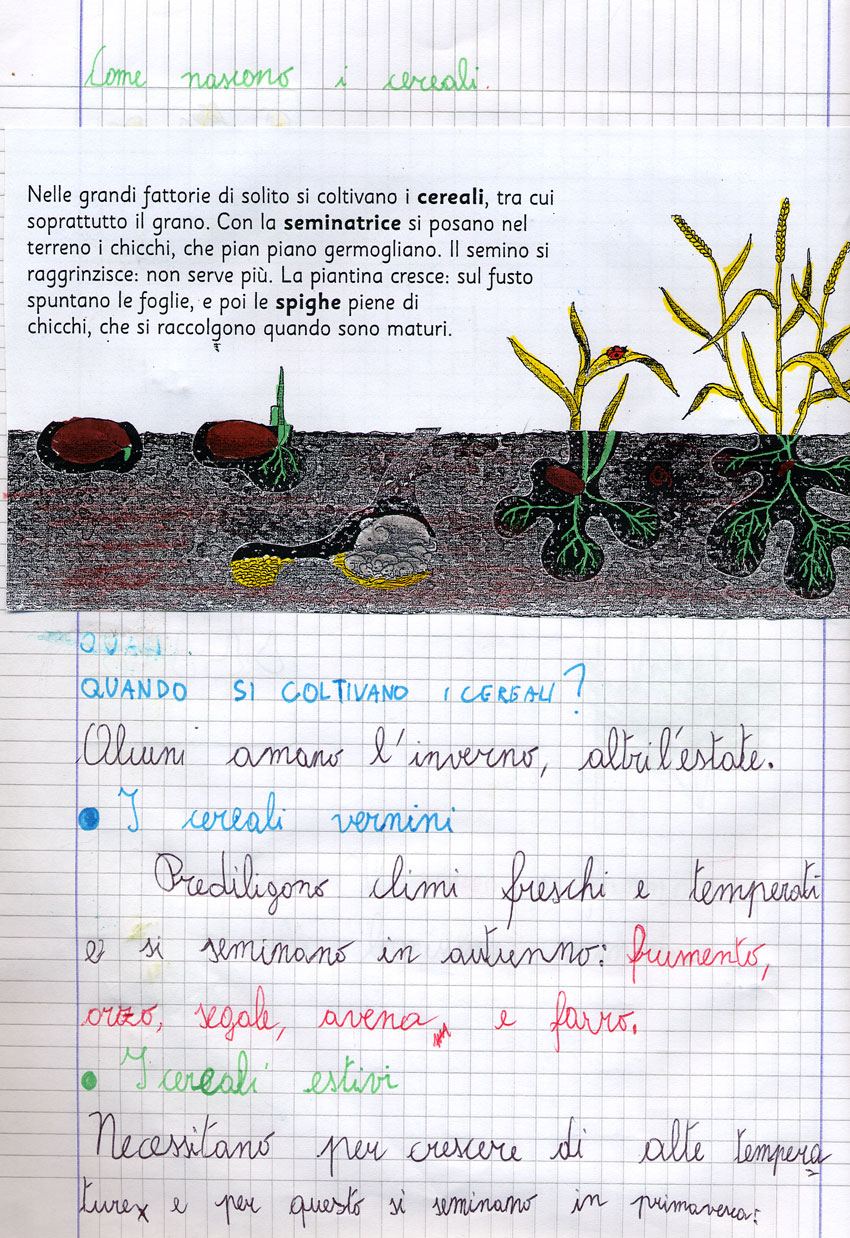 Come nascono i cereali.
Nelle grandi fattorie di solito si coltivano i cereali, tra cui
soprattutto il grano. Con la seminatrice si posano nel
terreno i chicchi, che pian piano germogliano. Il semino si
raggrinzisce: non serve più. La piantina cresce: sul fusto
spuntano le foglie, e poi le spighe piene di
chicchi, che si raccolgono quando sono maturi.
QUAN
QUANDO SI COLTIVANO I CEREALI?
Alcuni amano l'inverno, altri l'estate.
I cereali vernini
Prediligono climi freschi e temperati
e si seminano in autunno: frumento,
orzo, segale, avena e farro.
I cereali estivi
Necessitano per crescere di alte tempera
ture e per questo si seminano in primavera: